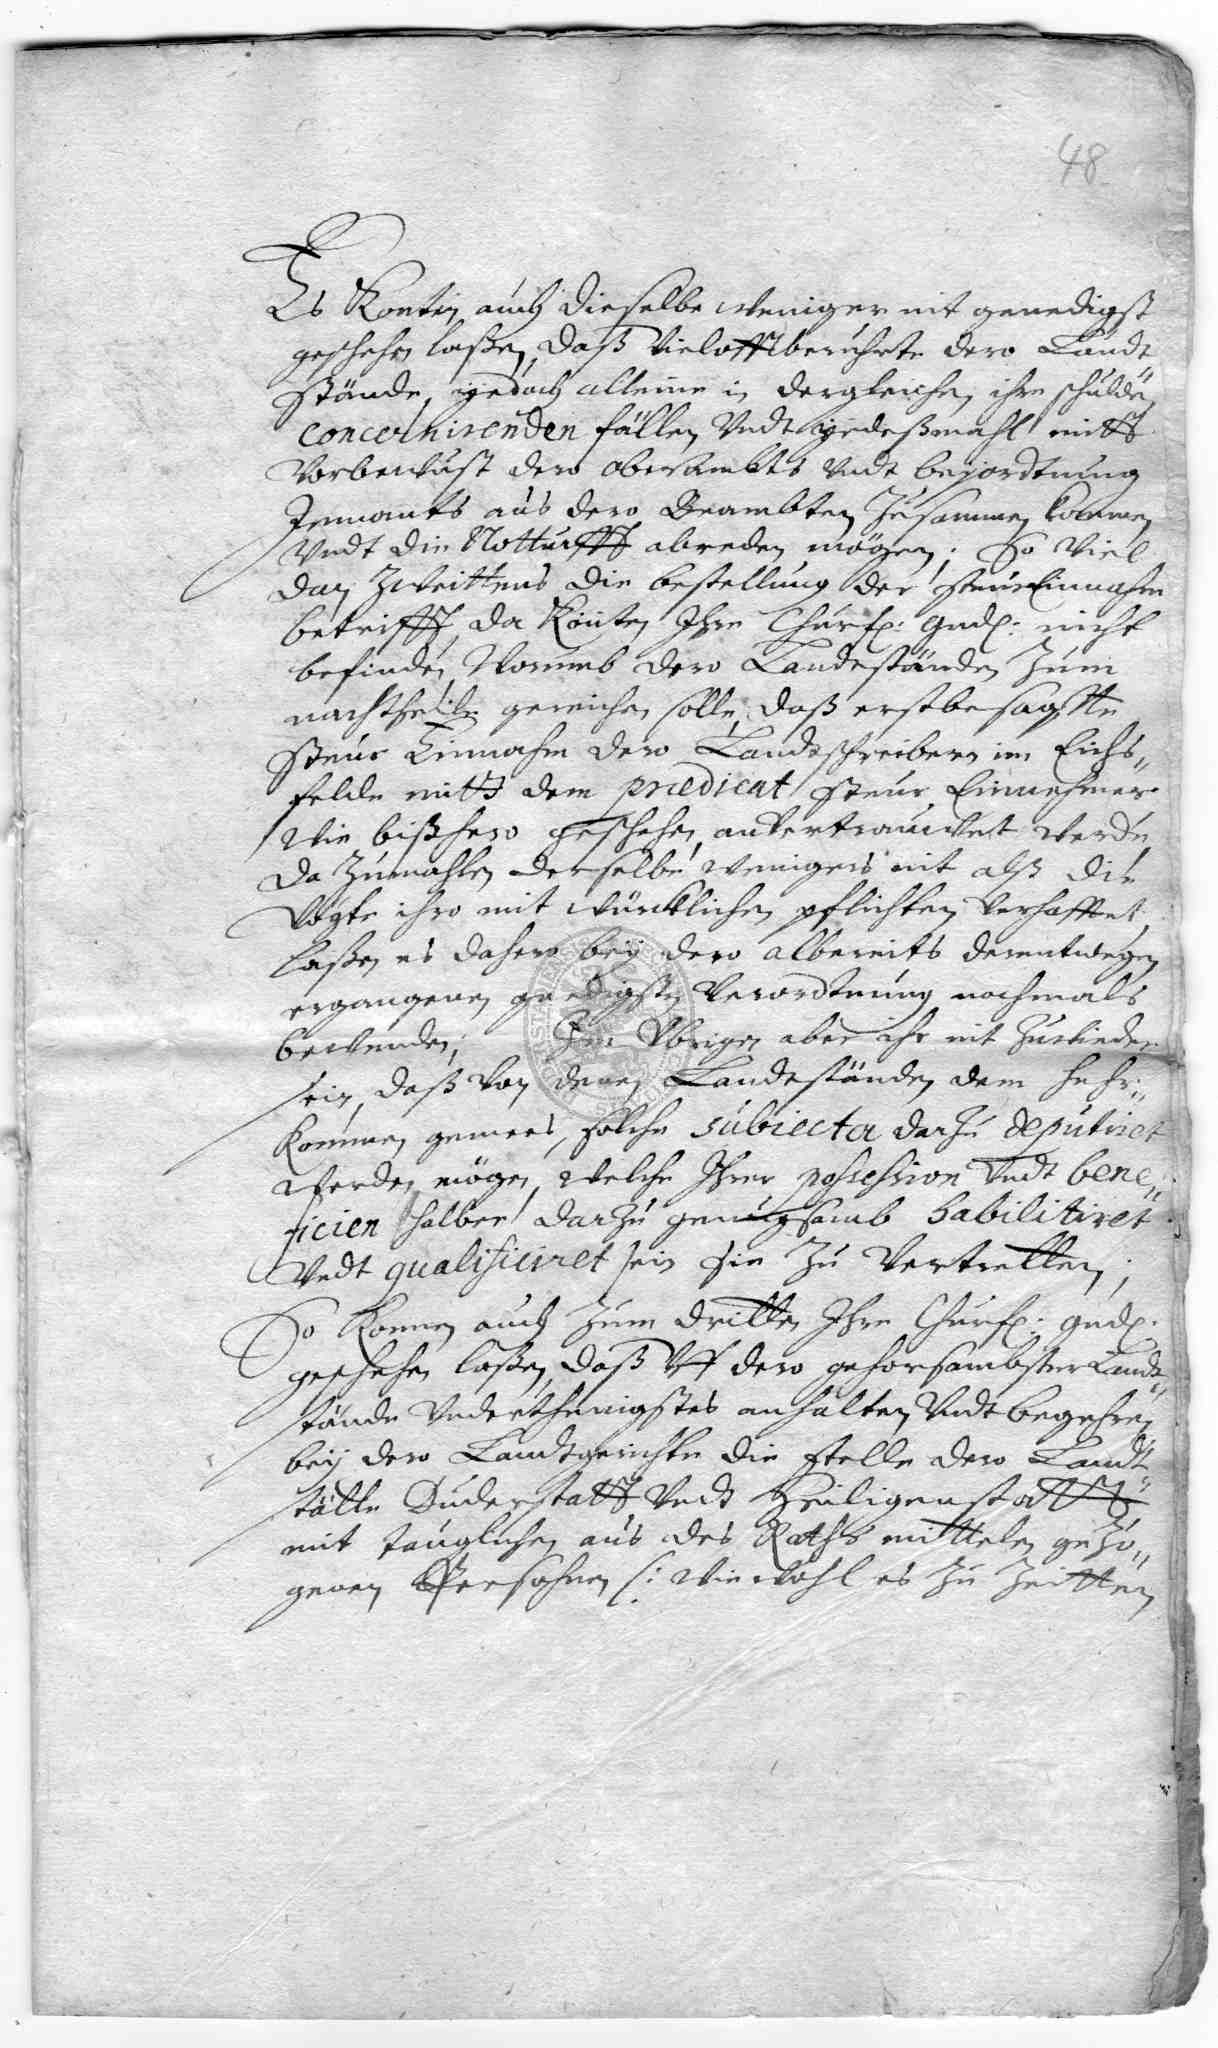 48
Es Konten auch dieselbe weniger nit genedigst
geschehen laßen, daß vieloftberührte dero Landt
Stände, yedoch alleine in dergleichen, ihre schulden
concernirenden fällen, Vndt yedeßmahl mitt
Vorbewust dero oberambts Vndt beyordtnung
Jemants aus dero Beambten, Zusammen kommen,
Vndt die Notturfft abreden mögen; So viel
dan Zweittens die bestellung der SteurEinnahm
betrifft, da Könten Ihre Churf: Gnd: nicht
befinden, Warumb dero Landtständen Zum
nachtheile gereichen solle, daß erstbesagte
Steur Einnahm dero Landtschreibern im Eichs„
felde mitt dem prædicat Steur Einnehmer
wie bißhero geschehen, anVertrauwet werde,
da Zumahlen derselbe wenigers nit alß die
Vögte ihro mit würcklichen pflichten Verhafftet,
laßen es dahero bey dero albereits derentwegen
ergangenen gnedigsten Verordtnung nochmals
bewenden; Im Vbrigen aber ihr nit Zuwieder
sein, daß von denen Landtständen, dem hehr„
kommen gemees, solche subiecta darzu deputiret
werden mögen, welche Ihrer possession Vndt bene„
ficien halber darzu genugsamb habilitiret
Vndt qualificiret sein sie Zu Vertretten;
So Können auch Zum dritten Ihre Churf: Gnd:
geschehen laßen, daß Vff dero gehorsambster Landt„
stände Vnderthenigstes anhalten, Vndt begehren,
bey dero Landtgerichte die stelle dero Landt„
stätte Duderstatt Vndt Heiligenstatt
mit tauglichen, aus des Raths mittelen gezo„
genen Persohnen /: wiewohl es Zu Zeitten